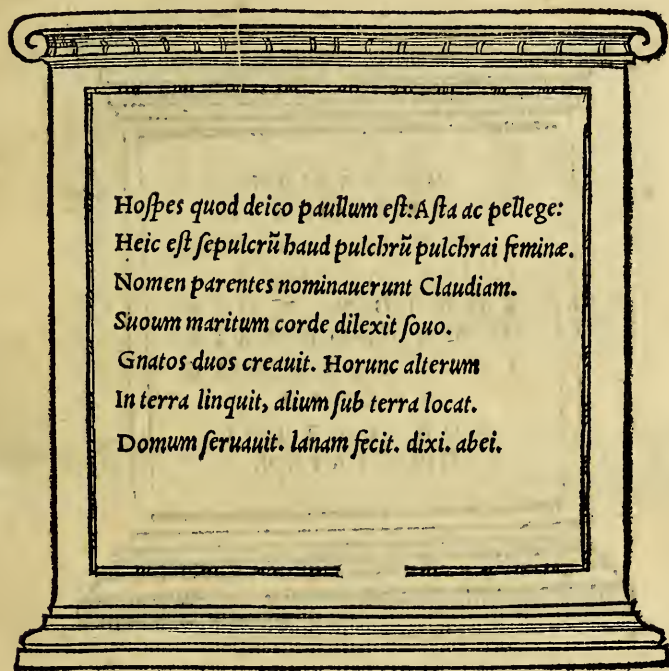 Hoſpes quod deico paullum eſt: Aſta ac pellege:
Heic eſt ſepulcrũ haud pulchrũ pulchrai feminæ.
Nomen parentes nominauerunt Claudiam.
Suoum maritum corde dilexit ſouo.
Gnatos duos creauit. Horunc alterum
In terra linquit, alium ſub terra locat.
Domum ſeruauit. lanam fecit. dixi. abei.